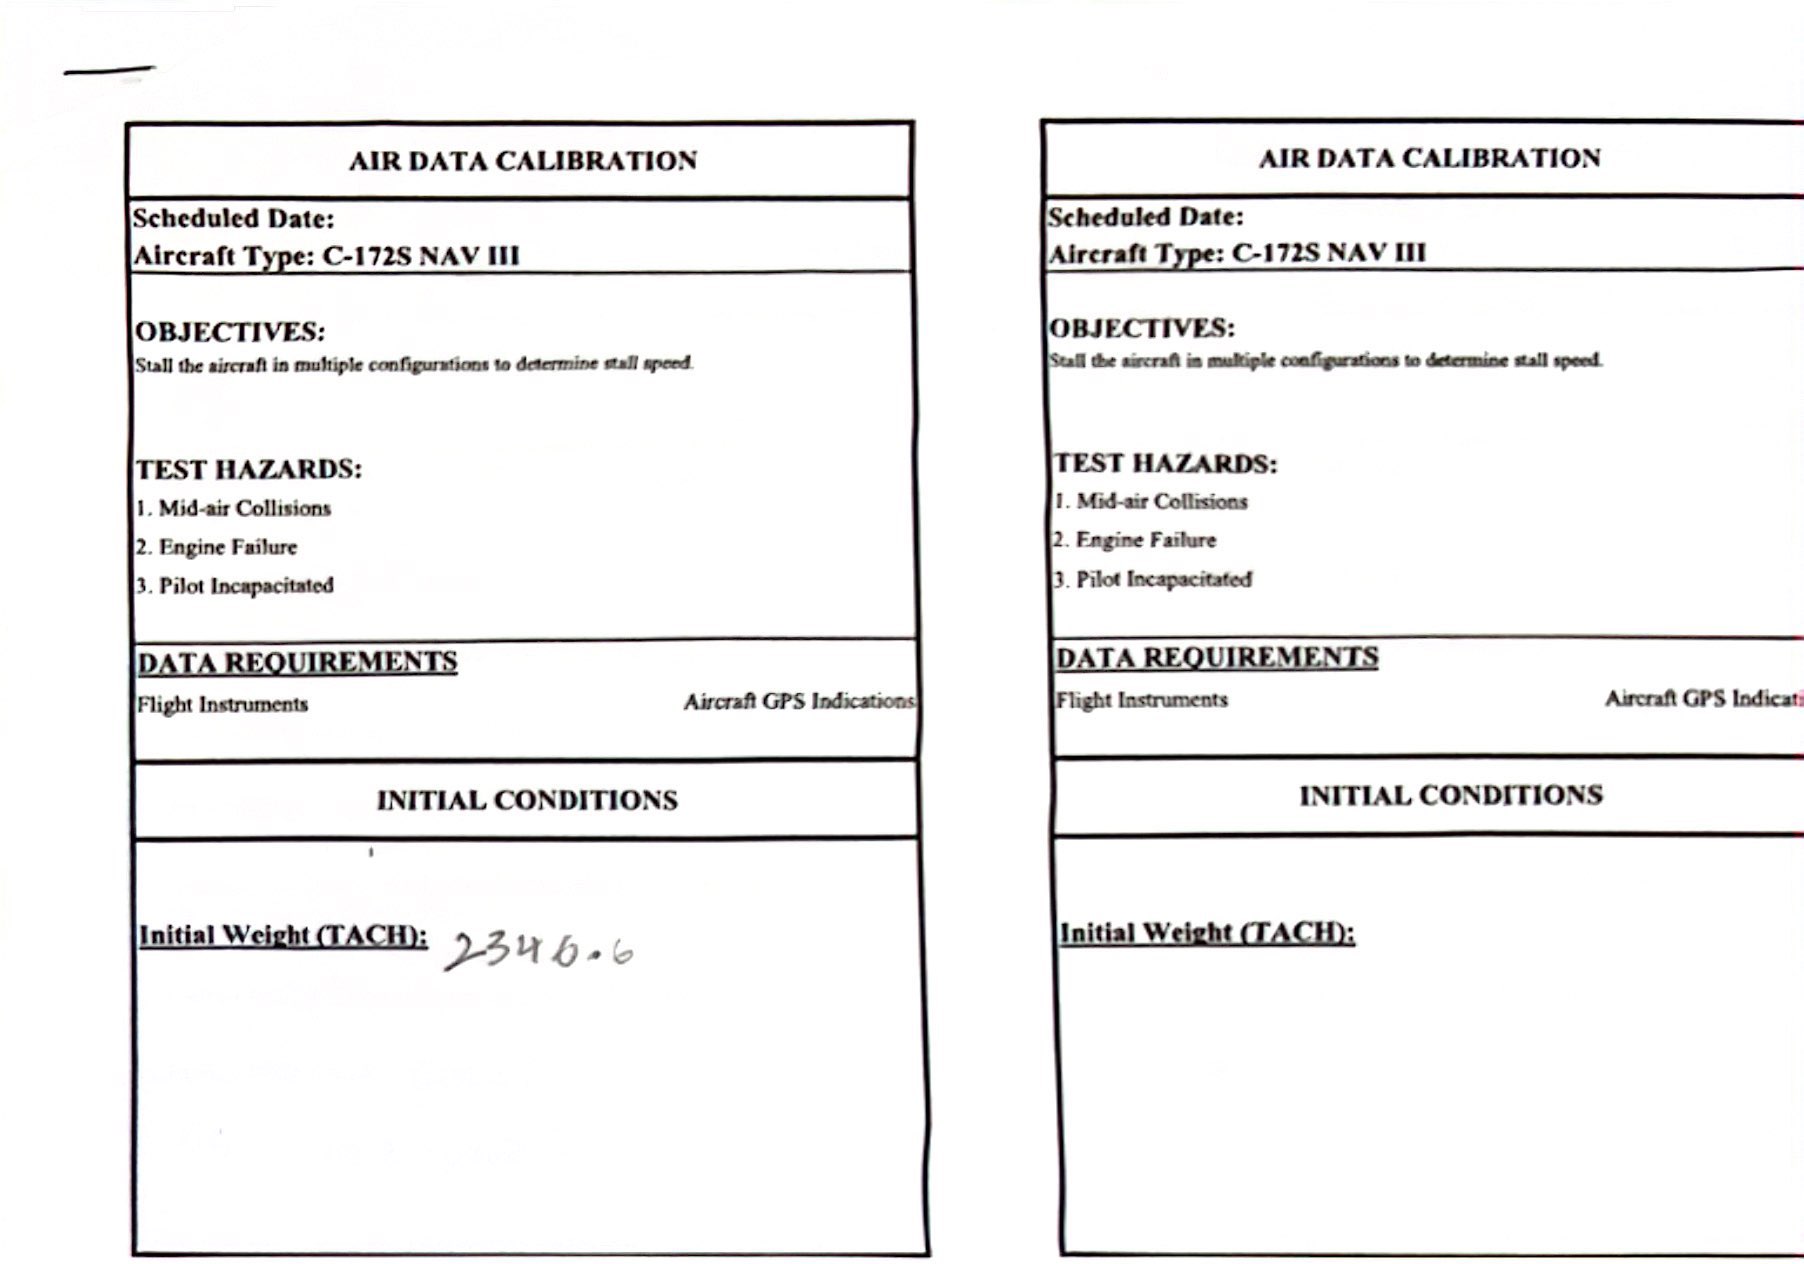 AIR DATA CALIBRATION
Scheduled Date:
Aircraft Type: C-172S NAV III
OBJECTIVES:
Stall the aircraft in multiple configurations to determine stall speed.
TEST HAZARDS:
1. Mid-air Collisions
2. Engine Failure
3. Pilot Incapacitated
DATA REQUIREMENTS
Flight Instruments Aircraft GPS Indications
INITIAL CONDITIONS
Initial Weight (TACH): 2346.6
AIR DATA CALIBRATION
Scheduled Date:
Aircraft Type: C-172S NAV III
OBJECTIVES:
Stall the aircraft in multiple configurations to determine stall speed.
TEST HAZARDS:
1. Mid-air Collisions
2. Engine Failure
3. Pilot Incapacitated
DATA REQUIREMENTS
Flight Instruments Aircraft GPS Indicati
INITIAL CONDITIONS
Initial Weight (TACH):